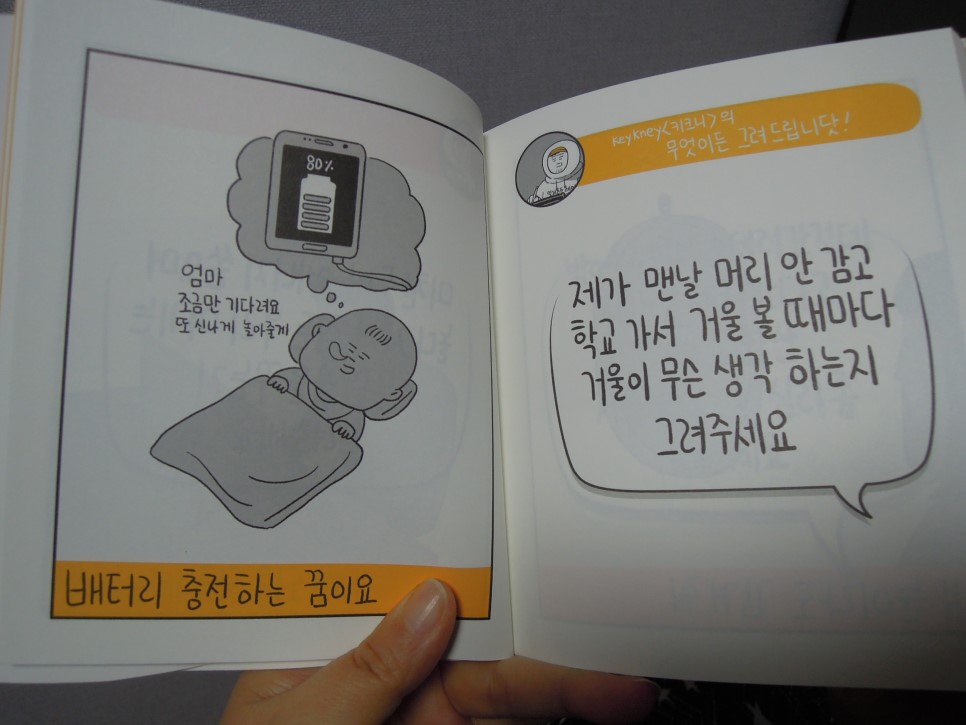 80%
엄마
조금만 기다려요
또 신나게 놀아줄게
배터리 충전하는 꿈이요
Keykney<키크니>의
무엇이든 그려드립니닷!
제가 맨날 머리 안 감고
학교 가서 거울 볼 때마다
거울이 무슨 생각 하는지
그려주세요